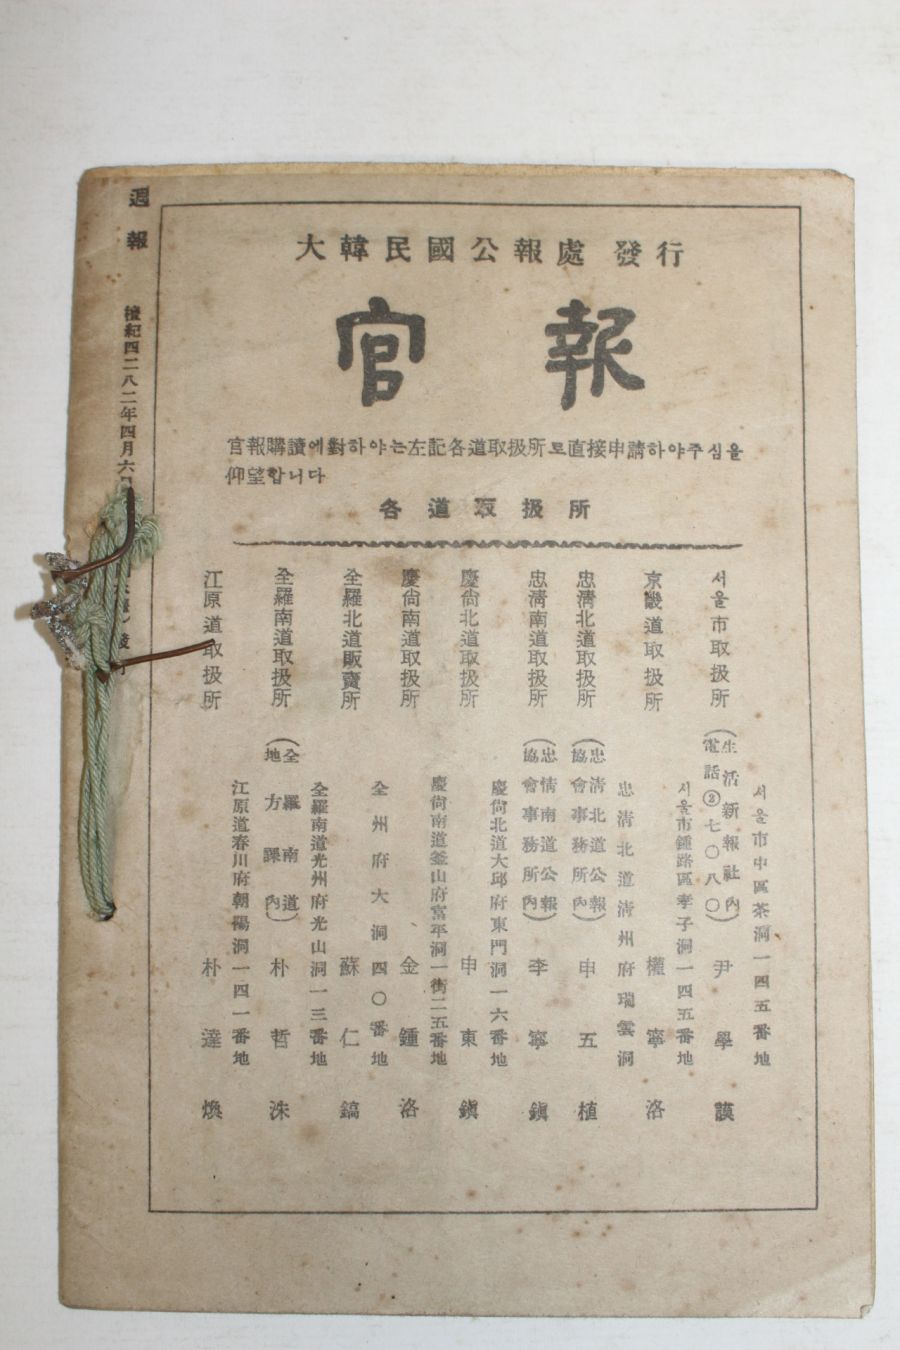 週報
檀紀四二八二年四月六日
大韓民國公報處 發行
官報
官報購讀에對하야는左記各道取扱所로直接申請하야주심을
仰望합니다
各道取扱所
서울市取扱所
서울市中區茶洞一四五番地
(生活新報社內)
電話②七〇八〇)
尹學謨
京畿道取扱所
서울市鍾路區孝子洞一四五番地
權寧洛
忠淸北道取扱所
忠淸北道淸州府瑞雲洞
(忠淸北道公報
協會事務所內)
申五植
忠淸南道取扱所
(忠情南道公報
協會事務所內)
李寧鎭
慶尙北道取扱所
慶尙北道大邱府東門洞一六番地
申東鎭
慶尙南道取扱所
慶尙南道釜山府富平洞一街二五番地
金鍾洛
全羅北道販賣所
全州府大洞四〇番地
蘇仁鎬
全羅南道取扱所
全羅南道光州府光山洞一三番地
(全羅南道
地方課內)
朴哲洙
江原道取扱所
江原道春川府朝陽洞一四一番地
朴達煥